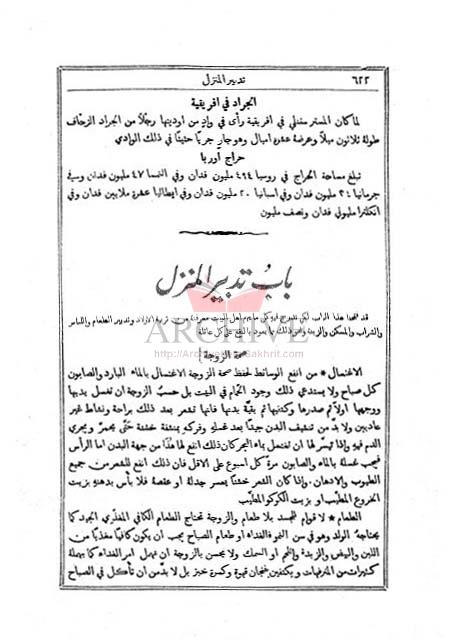 ٦٢٢
تدبير المنزل
الجراد في افريقية
لما كان المستر ستنلي في افريقية رأى في وادٍ من اوديتها رجلًا من الجراد الزحّاف
طولهُ ثلاثون ميلًا وعرضهُ عشرة اميال وهو جارٍ جريًا حثيثًا في ذلك الوادي
حراج اوربا
تبلغ مساحة الحراج في روسيا ٤٩٤ مليون فدان وفي النمسا ٤٧ مليون فدان وفي
جرمانيا ٣٤ مليون فدان وفي اسبانيا ٢٠ مليون فدان وفي ايطاليا عشرة ملايين فدان وفي
انكلترا مليوني فدان ونصف مليون
باب تدبير المنزل
قد فتحنا هذا الباب لكي ندرج فيهِ كل ما يهم اهل البيت معرفتهُ من تربية الاولاد وتدبير الطعام واللباس
والشراب والمسكن والزينة ونحو ذلك مما يعود بالنفع على كل عائلة
ARCHIVE
http://Archivebeta.Sakhrit.com
صحة الزوجة
الاغتسال * من انفع الوسائط لحفظ صحة الزوجة الاغتسال بالماء البارد والصابون
كل صباح ولا يستدعي ذلك وجود الحمام في البيت بل حسب الزوجة ان تغسل يديها
ووجهها اولًا ثم صدرها وكتفيها ثم بقية بدنها فانها تشعر بعد ذلك براحة ونشاط غير
عاديين ولا بدَّ من تنشيف البدن جيدًا بعد غسلهِ وفركهِ بمنشفة خشنة حتى يحمرَّ ويجري
الدم فيهِ واذا تيسر لها ان تغتسل بماء البحر كان ذلك انفع لها هذا من جهة البدن اما الرأس
فيجب غسلهُ بالماء والصابون مرة كل اسبوع على الاقل فان ذلك انفع للشعر من جميع
الطيوب والادهان. واذا كان الشعر خشنًا يعسر جدلهُ او عقصهُ فلا بأس بدهنهِ بزيت
الخروع المطيّب او بزيت الكوكو المطيّب
الطعام * لا قوام للجسد بلا طعام والزوجة تحتاج الطعام الكافي المغذّي الجيد كما
يحتاجهُ الولد وهو في سن النمو فالغداء او طعام الصباح يجب ان يكون كافيًا مغذيًا من
اللبن والبيض والزبدة واللحم او السمك ولا يحسن بالزوجة ان تهمل امر الغداء كما يهملهُ
كثيرات من المترفهات ويكتفين بفنجان قهوة وكسرة خبز بل لا بدّ من ان تأكل في الصباح